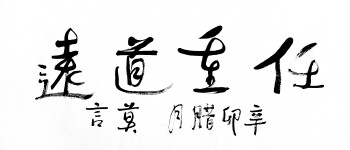 任重道遠
辛卯腊月 莫言